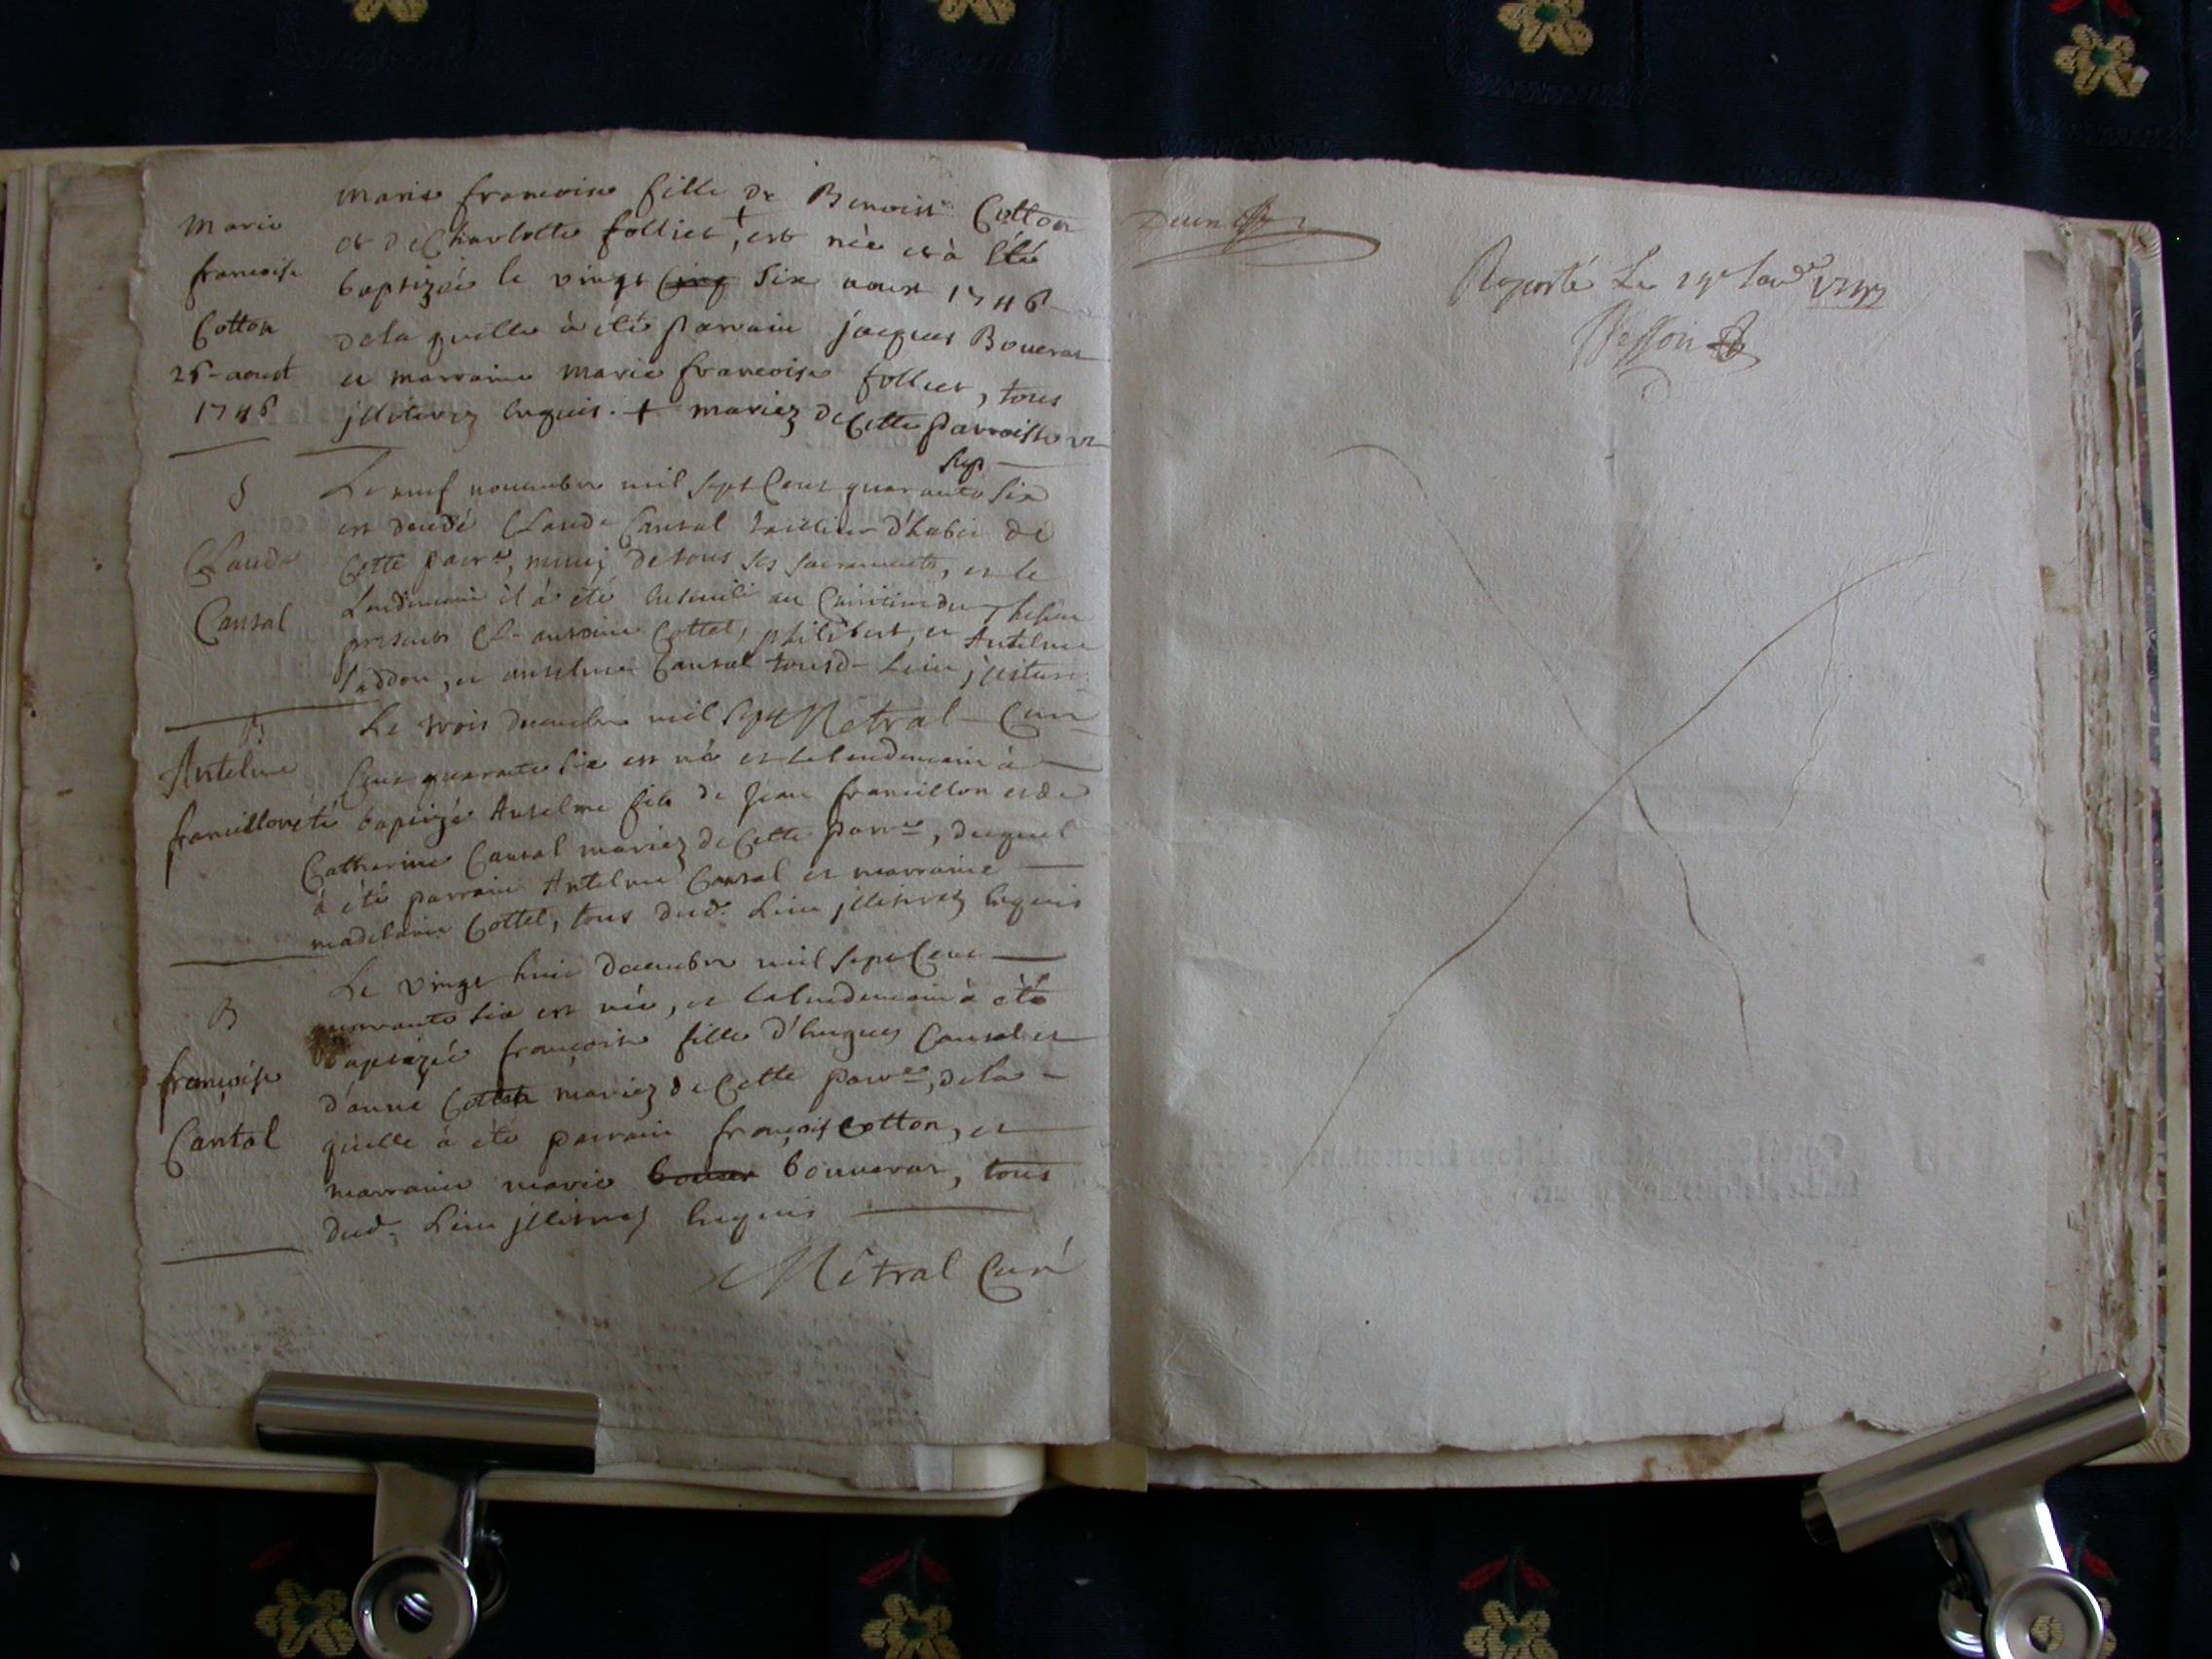 Marie
francoise
Cotton
26 aoust
1746
marie francoise fille de Benoist Cotton
et de Charlotte folliet, + est née et à été
baptizée le vingt cinq six aoust 1746
dela quelle à été parrain jacques Bouverat
et marraine marie francoise folliet, tous
jlliterez enquis. + mariez de Cette parroisse et
S
Claude
Cantal
Le neuf novembre mil sept Cent quarante six
est decedé Claude Cantal tailleur d'habit de
Cette parr.e, muni de tous ses sacrements, et le
Lendemain il à été enseveli au Cimitiere du
presents Cl. antoine Cottet, philibert, et Antelme
et antelme Cantal tous d. Lieu
Mêtral Curé
B
Antelme
francillon
Le trois decembre mil sept
Cent quarante six est né et le lendemain à
été baptizé Antelme fils de Jean francillon et de
Catherine Cantal mariez de Cette parr.e, duquel
à été parrain Antelme Cantal et marraine
madelaine Cottet, tous dud. Lieu jlliterez enquis
B
françoise
Cantal
Le vingt huit decembre mil sept Cent
quarante six est née, et le lendemain à été
baptizée françoise fille d'hugues Cantal et
d'anne mariez de Cette parr.e, dela
quelle à été parrain françois Cotton, et
marraine marie bouver bouverat, tous
dud. Lieu jlliterez enquis
Mêtral Curé
Raporté Le